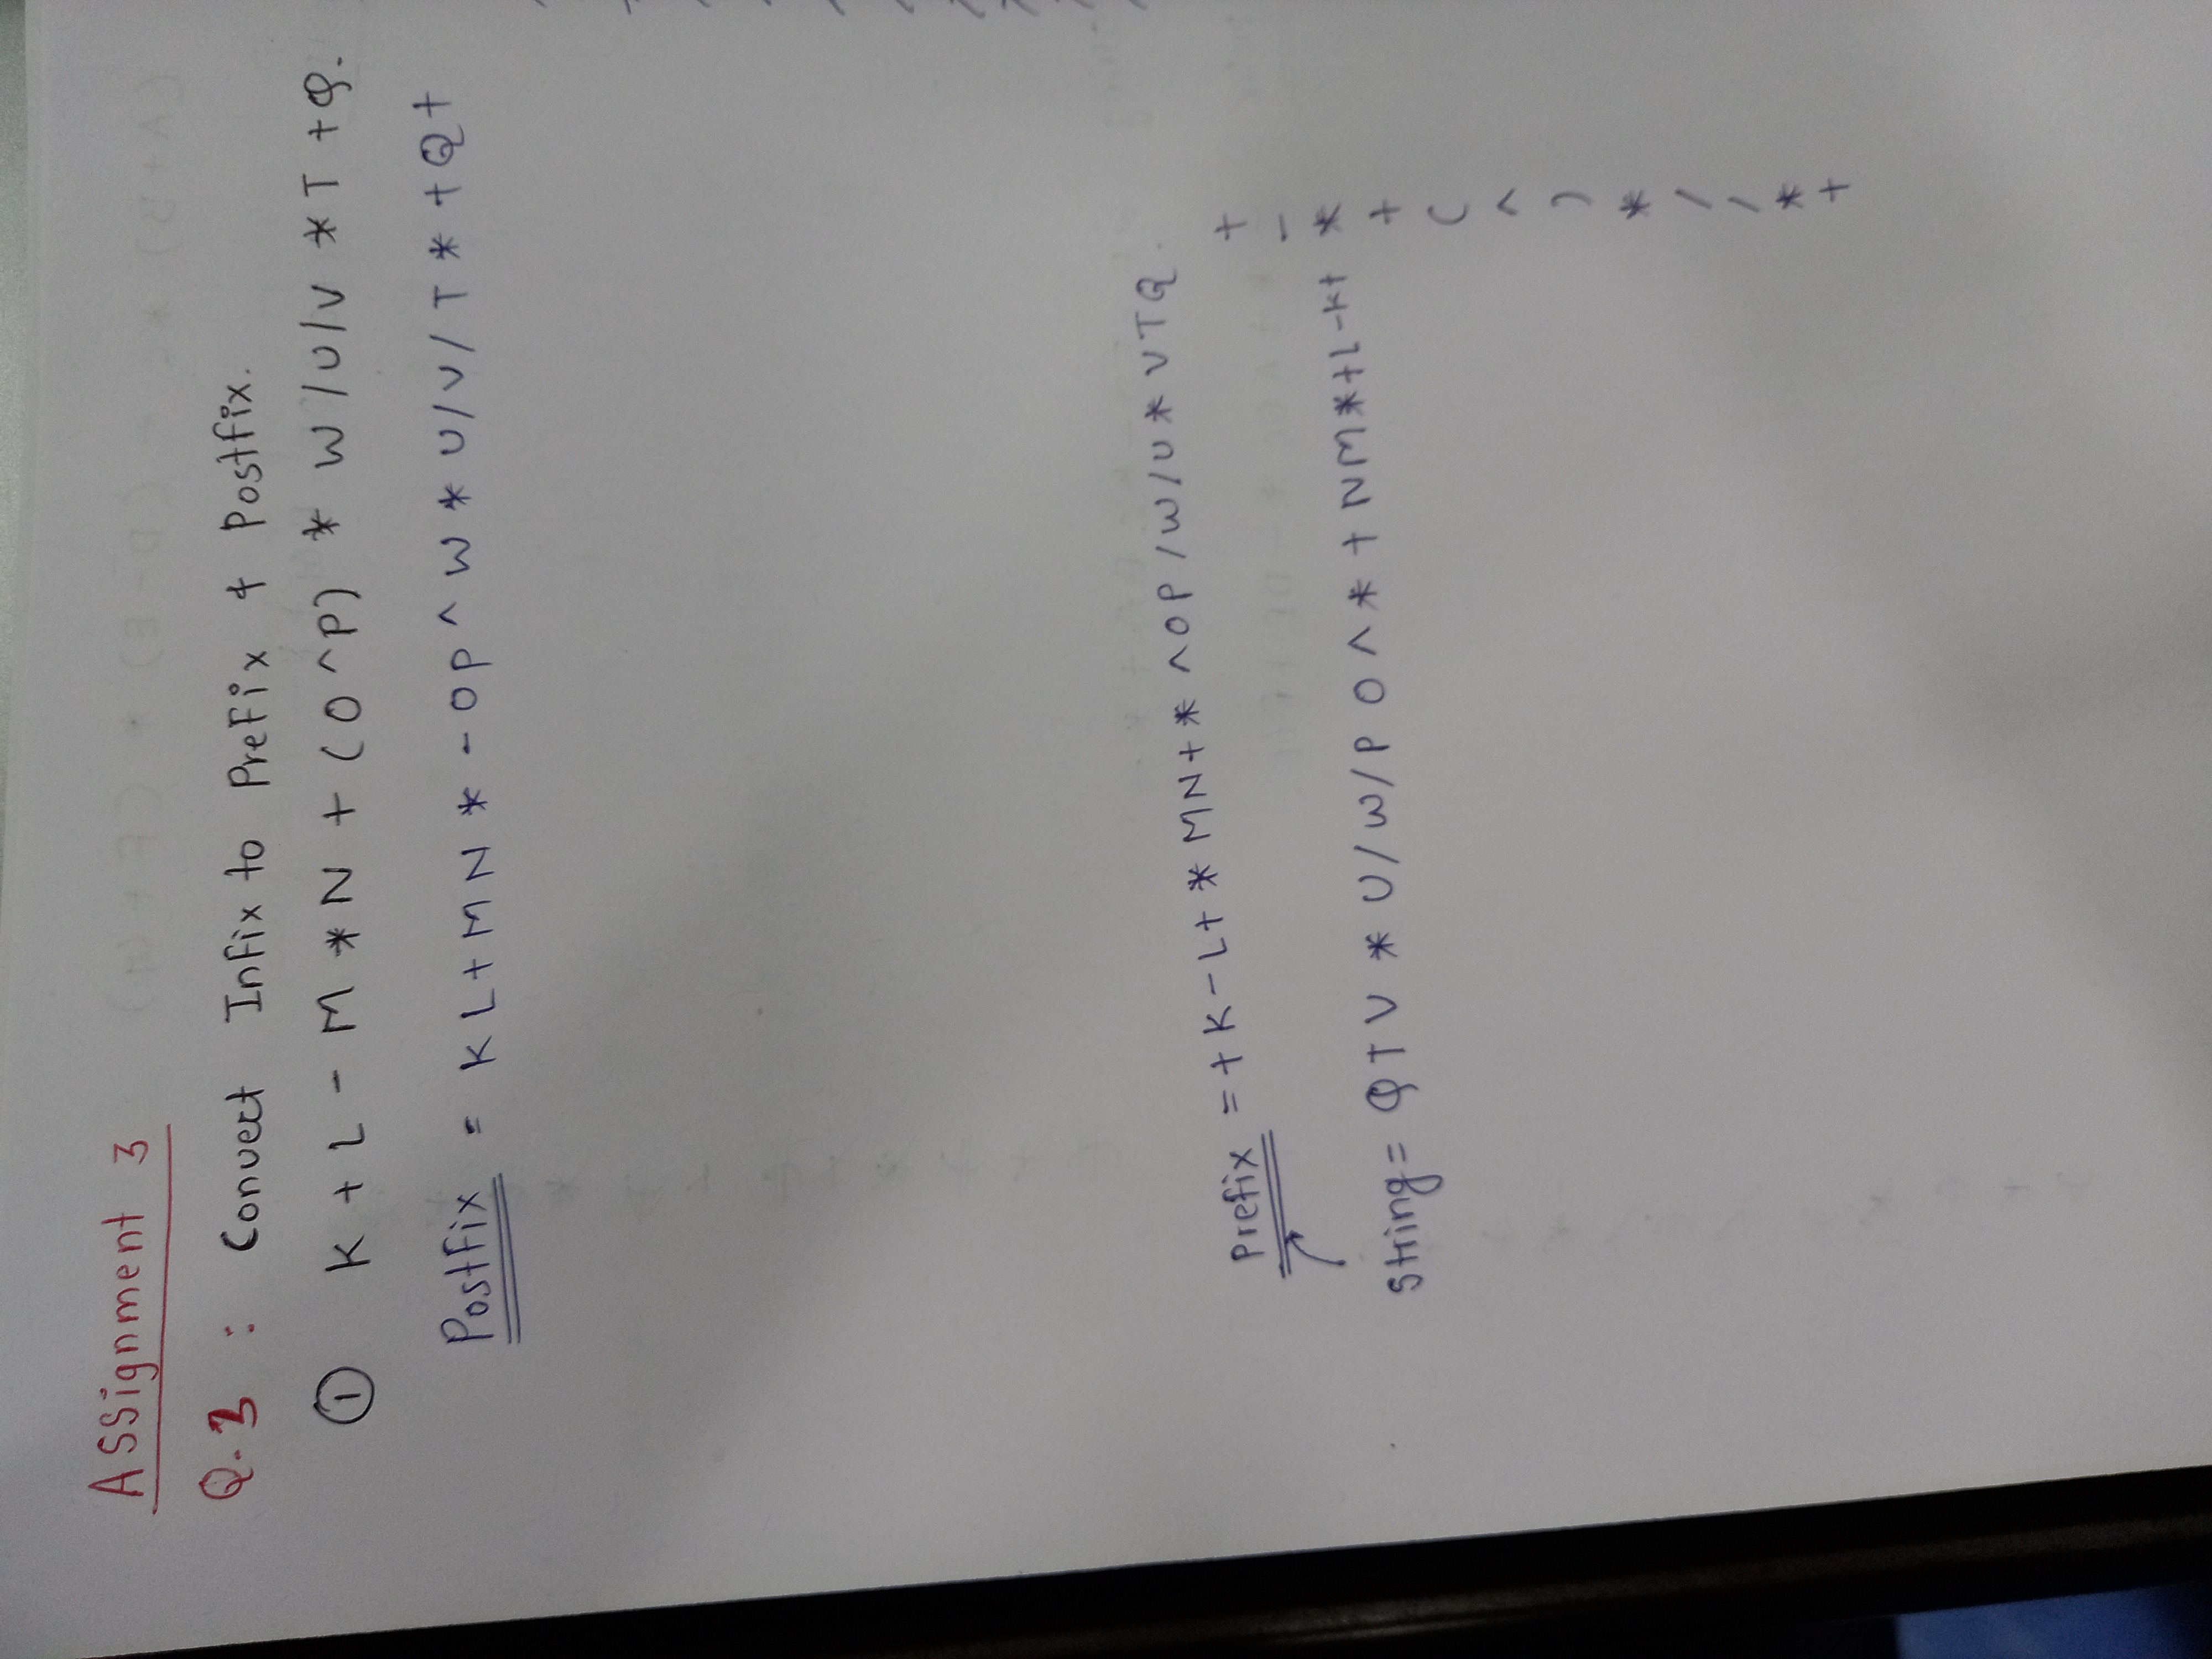 Assignment 3
Q.3 : Convert Infix to Prefix & Postfix.
① K + L - M * N + (O ^ P) * W / U / V * T + Q.
Postfix = K L + M N * - O P ^ W * U / V / T * + Q +
Prefix = + K - L + * M N + * ^ O P / W / U * V T Q.
String = Q T V * U / W / P O ^ * + N M * + L - K +
+
-
*
+
(
^
)
*
/
/
*
+